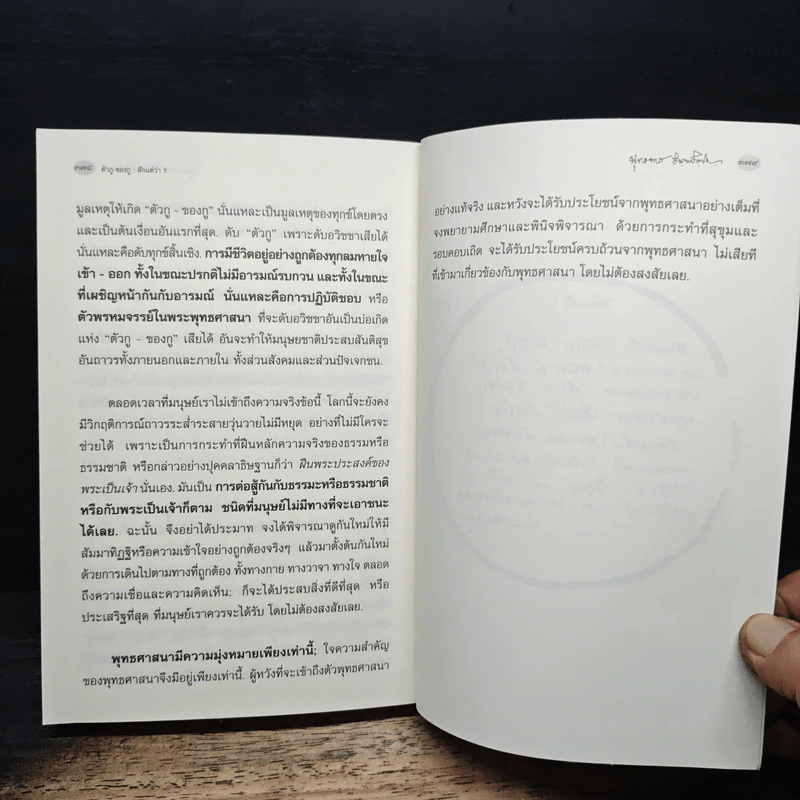 ๓๗๘ ตัวกู-ของกู : สักแต่ว่า !!
มูลเหตุให้เกิด “ตัวกู - ของกู” นั่นแหละเป็นมูลเหตุของทุกข์โดยตรง
และเป็นต้นเงื่อนอันแรกที่สุด. ดับ “ตัวกู” เพราะดับอวิชชาเสียได้
นั่นแหละคือดับทุกข์สิ้นเชิง. การมีชีวิตอยู่อย่างถูกต้องทุกลมหายใจ
เข้า - ออก ทั้งในขณะปรกติไม่มีอารมณ์รบกวน และทั้งในขณะ
ที่เผชิญหน้ากันกับอารมณ์ นั่นแหละคือการปฏิบัติชอบ หรือ
ตัวพรหมจรรย์ในพระพุทธศาสนา ที่จะดับอวิชชาอันเป็นบ่อเกิด
แห่ง “ตัวกู - ของกู” เสียได้ อันจะทำให้มนุษยชาติประสบสันติสุข
อันถาวรทั้งภายนอกและภายใน ทั้งส่วนสังคมและส่วนปัจเจกชน.
ตลอดเวลาที่มนุษย์เราไม่เข้าถึงความจริงข้อนี้ โลกนี้จะยังคง
มีวิกฤติการณ์ถาวรระส่ำระสายวุ่นวายไม่มีหยุด อย่างที่ไม่มีใครจะ
ช่วยได้ เพราะเป็นการกระทำที่ฝืนหลักความจริงของธรรมหรือ
ธรรมชาติ หรือกล่าวอย่างปุคคลาธิษฐานก็ว่า ฝืนพระประสงค์ของ
พระเป็นเจ้า นั่นเอง. มันเป็น การต่อสู้กันกับธรรมะหรือธรรมชาติ
หรือกับพระเป็นเจ้าก็ตาม ชนิดที่มนุษย์ไม่มีทางที่จะเอาชนะ
ได้เลย. ฉะนั้น จึงอย่าได้ประมาท จงได้พิจารณาดูกันใหม่ให้มี
สัมมาทิฏฐิหรือความเข้าใจอย่างถูกต้องจริงๆ แล้วมาตั้งต้นกันใหม่
ด้วยการเดินไปตามทางที่ถูกต้อง ทั้งทางกาย ทางวาจา ทางใจ ตลอด
ถึงความเชื่อและความคิดเห็น; ก็จะได้ประสบสิ่งที่ดีที่สุด หรือ
ประเสริฐที่สุด ที่มนุษย์เราควรจะได้รับ โดยไม่ต้องสงสัยเลย.
พุทธศาสนามีความมุ่งหมายเพียงเท่านี้; ใจความสำคัญ
ของพุทธศาสนาจึงมีอยู่เพียงเท่านี้. ผู้หวังที่จะเข้าถึงตัวพุทธศาสนา
๓๗๙
อย่างแท้จริง และหวังจะได้รับประโยชน์จากพุทธศาสนาอย่างเต็มที่
จงพยายามศึกษาและพินิจพิจารณา ด้วยการกระทำที่สุขุมและ
รอบคอบเถิด จะได้รับประโยชน์ครบถ้วนจากพุทธศาสนา ไม่เสียที
ที่เข้ามาเกี่ยวข้องกับพุทธศาสนา โดยไม่ต้องสงสัยเลย.